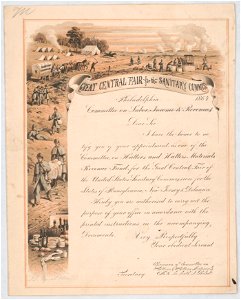 GREAT CENTRAL FAIR for the SANITARY COMMISSION
Philadelphia 1864
Committee on Labor, Income & Revenue
Dear Sir
I have the honor to no-
tify you of your appointment as one of the
Committee on Hatters and Hatters Materials
Revenue Fund, for the Great Central Fair of
the United States Sanitary Commission, for the
States of Pennsylvania, New Jersey & Delaware
Hereby you are authorized to carry out the
purpose of your office in accordance with the
printed instructions in the accompanying
Documents.
Very Respectfully
Your obedient Servant
Secretary